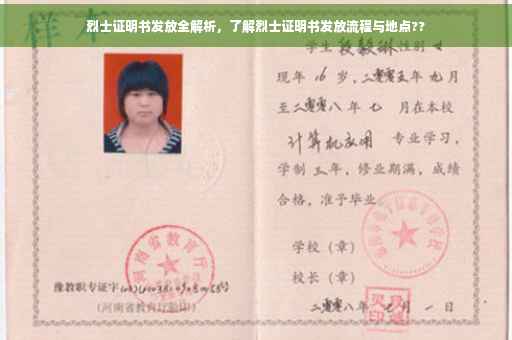 烈士证明书发放全解析，了解烈士证明书发放流程与地点??
样本
学生段毅琳性别女
现年16岁，二零零五年九月
至二零零八年七月在本校
计算机应用 专业学习，
学制三年，修业期满，成绩
合格，准予毕业。
学校（章）
校长（章）
河南省教育厅
豫教职专证字
(河南省教育厅验印)
二零零八年七月一日